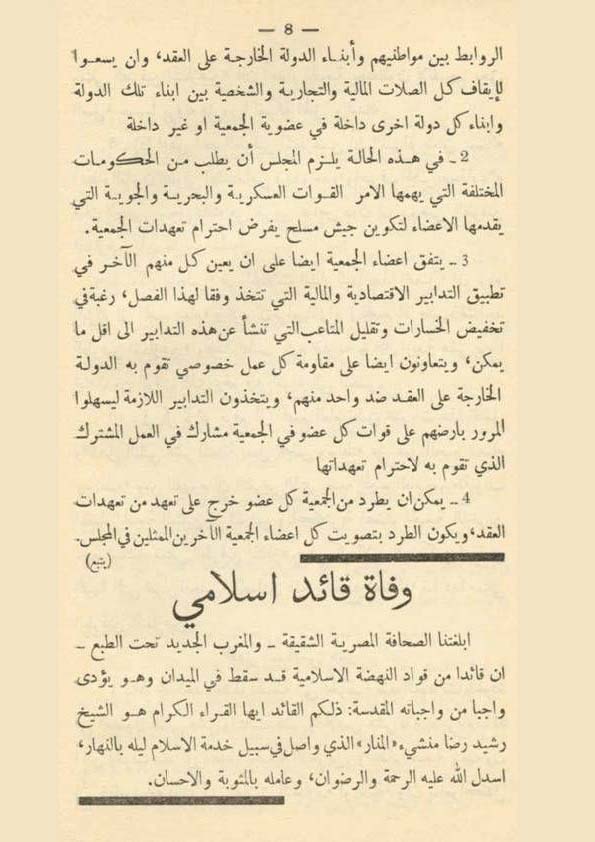 — 8 —
الروابط بين مواطنيهم وأبناء الدولة الخارجة على العقد، وان يسعوا
لإيقاف كل الصلات المالية والتجارية والشخصية بين ابناء تلك الدولة
وابناء كل دولة اخرى داخلة في عضوية الجمعية او غير داخلة
2 ـ في هذه الحالة يلزم المجلس أن يطلب من الحكومات
المختلفة التي يهمها الامر القوات العسكرية والبحرية والجوية التي
يقدمها الاعضاء لتكوين جيش مسلح يفرض احترام تعهدات الجمعية.
3 ـ يتفق اعضاء الجمعية ايضا على ان يعين كل منهم الآخر في
تطبيق التدابير الاقتصادية والمالية التي تتخذ وفقا لهذا الفصل، رغبة في
تخفيض الخسارات وتقليل المتاعب التي تنشأ عن هذه التدابير الى اقل ما
يمكن، ويتعاونون ايضا على مقاومة كل عمل خصوصي تقوم به الدولة
الخارجة على العقد ضد واحد منهم، ويتخذون التدابير اللازمة ليسهلوا
المرور بارضهم على قوات كل عضو في الجمعية مشارك في العمل المشترك
الذي تقوم به لاحترام تعهداتها
4 ـ يمكن ان يطرد من الجمعية كل عضو خرج على تعهد من تعهدات
العقد، ويكون الطرد بتصويت كل اعضاء الجمعية الآخرين الممثلين في المجلس.
(يتبع)
وفاة قائد اسلامي
ابلغتنا الصحافة المصرية الشقيقة ـ والمغرب الجديد تحت الطبع ـ
ان قائدا من قواد النهضة الاسلامية قد سقط في الميدان وهو يؤدى
واجبا من واجباته المقدسة: ذلكم القائد ايها القراء الكرام هو الشيخ
رشيد رضا منشيء «المنار» الذي واصل في سبيل خدمة الاسلام ليله بالنهار،
اسدل الله عليه الرحمة والرضوان، وعامله بالمثوبة والاحسان.